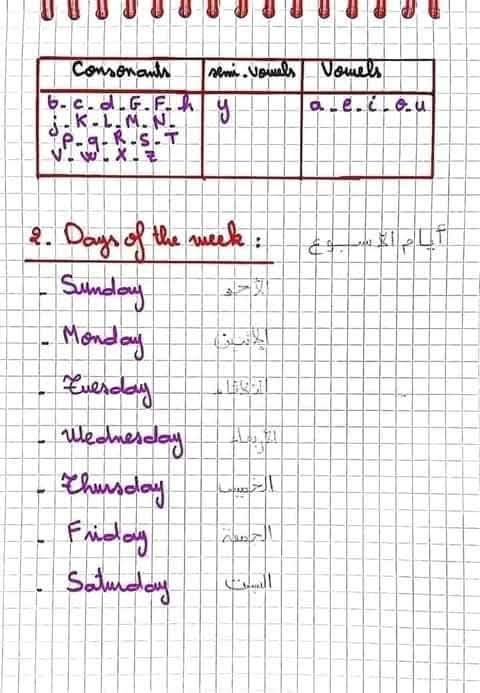 Consonants semi-Vowels Vowels
b-c-d-G-F-h y a-e-i-o-u
j-K-L-M-N-
P-q-R-S-T
V-W-X-Z
2. Days of the week: أيام الأسبوع
- Sunday الأحد
- Monday الإثنين
- Tuesday الثلاثاء
- Wednesday الأربعاء
- Thursday الخميس
- Friday الجمعة
- Saturday السبت